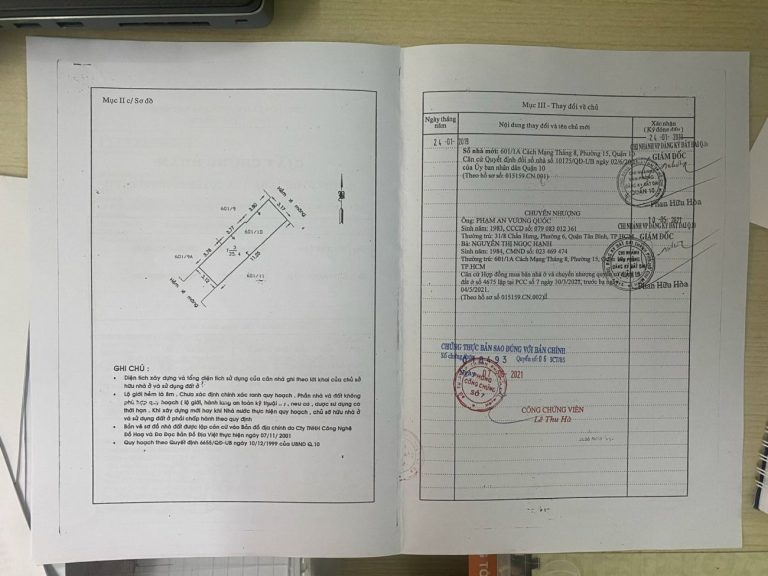 Mục II c/ Sơ đồ
Hẻm xi măng
3.17
601/9
3.80
3.77
601/10
3.76
3
25.4
11.05
601/9A
601/11
3.12
Hẻm xi măng
GHI CHÚ :
Diện tích xây dựng và tổng diện tích sử dụng của căn nhà ghi theo lời khai của chủ sở
hữu nhà ở và sử dụng đất ở
Lộ giới hẻm là 8m . Chưa xác định chính xác ranh quy hoạch . Phần nhà và đất không
phù hợp quy hoạch ( lộ giới, hành lang an toàn kỹ thuật ... , nếu có , được sử dụng có
thời hạn . Khi xây dựng mới hay khi Nhà nước thực hiện quy hoạch , chủ sở hữu nhà ở
và sử dụng đất ở phải chấp hành theo quy định
Bản vẽ sơ đồ nhà đất được lập căn cứ vào Bản đồ địa chính do Cty TNHH Công Nghệ
Đồ Hoạ và Đo Đạc Bản Đồ Địa Việt thực hiện ngày 07/11/ 2001
Quy hoạch theo Quyết định 6655/QĐ-UB ngày 10/12/1999 của UBND Q.10
Mục III - Thay đổi về chủ
Ngày tháng
năm
Nội dung thay đổi và tên chủ mới
Xác nhận
(Ký đóng dấu)
24 -01- 2019
Số nhà mới: 601/1A Cách Mạng Tháng 8, Phường 15, Quận 10
Căn cứ Quyết định đổi số nhà số 10175/QĐ-UB ngày 02/6/
của Ủy ban nhân dân Quận 10
(Theo hồ sơ số: 015159.CN.001)
24 -01-
CHI NHÁNH VP ĐĂNG KÝ ĐẤT ĐAI Q.10
GIÁM ĐỐC
CHI NHÁNH
VĂN PHÒNG
ĐĂNG KÝ ĐẤT ĐAI
QUẬN 10
Phan Hữu Hòa
CHUYỂN NHƯỢNG
Ông: PHẠM AN VƯƠNG QUỐC
Sinh năm: 1983, CCCD số: 079 083 012 361
Thường trú: 31/8 Chấn Hưng, Phường 6, Quận Tân Bình, TP.HCM
Bà: NGUYỄN THỊ NGỌC HẠNH
Sinh năm: 1984, CMND số: 023 469 474
Thường trú: 601/1A Cách Mạng Tháng 8, Phường 15, Quận
TP.HCM
Căn cứ Hợp đồng mua bán nhà ở và chuyển nhượng quyền
đất ở số 4675 lập tại PCC số 7 ngày 30/3/2021, trước bạ
04/5/2021.
(Theo hồ sơ số 015159.CN.002)
10 -05- 2021
CHI NHÁNH VP ĐĂNG KÝ ĐẤT ĐAI Q.10
GIÁM ĐỐC
CHI NHÁNH
VĂN PHÒNG
ĐĂNG KÝ ĐẤT ĐAI
Phan Hữu Hòa
CHỨNG THỰC BẢN SAO ĐÚNG VỚI BẢN CHÍNH
Quyển số: 06 SCT/BS
Ngày 2021
PHÒNG
CÔNG CHỨNG
SỐ 7
CÔNG CHỨNG VIÊN
Lê Thu Hà